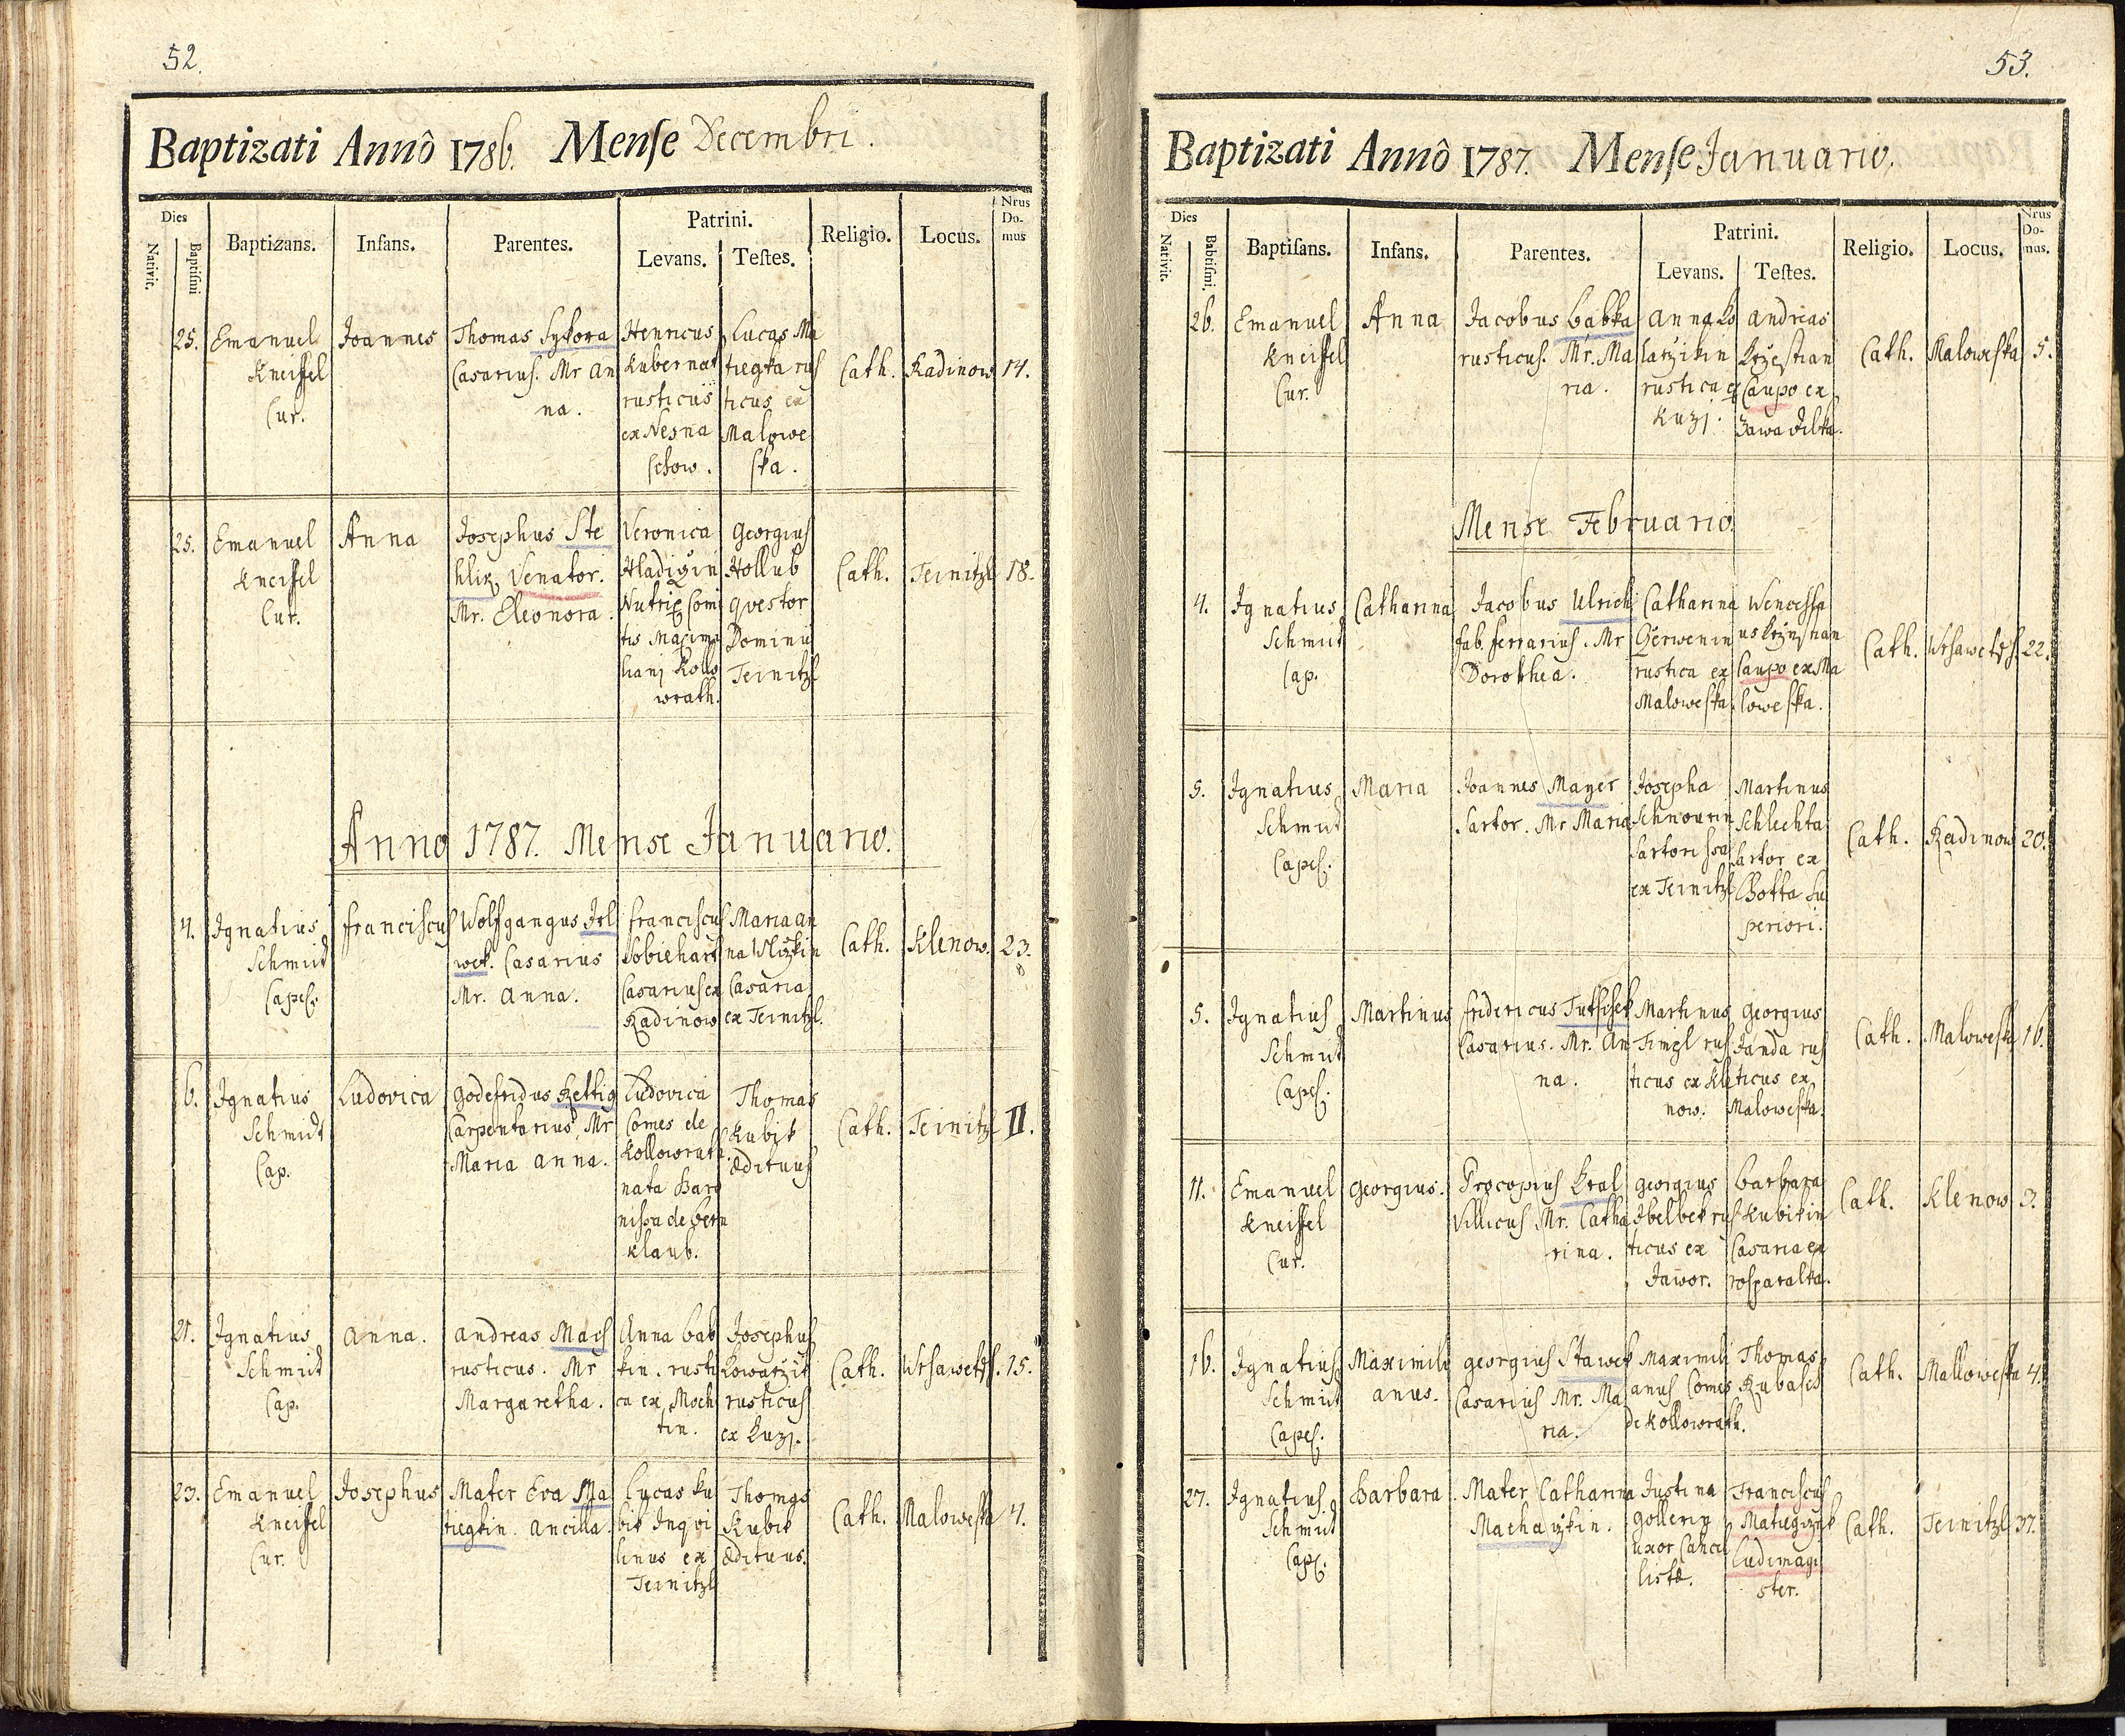 52.
Baptizati Annô 1786. Mense Decembri.
Dies
Nativit.
Baptismi
Baptizans.
Infans.
Parentes.
Patrini.
Levans.
Testes.
Religio.
Locus.
Nrus
Do-
mus
25.
Emanuel
Kneissel
Cur.
Joannes
Thomas Sykora
Casarius. Mr An
na.
Henricus
Kubernat
rusticus
ex Nesna
schow.
Lucas Ma
tiegka rus
ticus ex
Malowe
ska.
Cath.
Radinow
14.
25.
Emanuel
Kneissel
Cur.
Anna
Josephus Ste
hlik Venator.
Mr. Eleonora.
Veronica
Nutrix Comi
tis Maximi
liani Kollo
wrath.
Georgius
Hollub
Qvestor
Dominii
Teinitzl
Cath.
Teinitzl
18.
Anno 1787. Mense Januario.
4.
Ignatius
Schmid
Capel.
Franciscus
Wolfgangus Jel
wek. Casarius
Mr. Anna.
Franciscus
Sobiehart
Casarius ex
Radinow
Maria An
na
Casaria
ex Teinitzl.
Cath.
Klenow.
23.
6.
Ignatius
Schmidt
Cap.
Ludovica
Godefridus Rettig
Carpentarius, Mr
Maria Anna.
Ludovica
Comes de
Kollowrath
nata Baro
nissa de Bern
klaub.
Thomas
Kubik
Ædituus
Cath.
Teinitzl
11.
21.
Ignatius
Schmid
Cap.
Anna.
Andreas Mach
rusticus. Mr
Margaretha.
Anna Bab
kin. rusti
ca ex Moch
tin.
Josephus
Kowarzik
rusticus
ex Luzj.
Cath.
Wrsawetz.
15.
23.
Emanuel
Kneissel
Cur.
Josephus
Mater Eva Ma
tiegkin. Ancilla.
Lucas Ku
bik Inqvi
linus ex
Teinitzl
Thomas
Kubik
Ædituus.
Cath.
Maloweska
4.
53.
Baptizati Annô 1787. Mense Januario.
Dies
Nativit.
Babtismi.
Baptisans.
Infans.
Parentes.
Patrini.
Levans.
Testes.
Religio.
Locus.
Nrus
Do-
mus.
26.
Emanuel
Kneissel
Cur.
Anna
Jacobus Babka
rusticus. Mr. Ma
ria.
Anna Ko
latzikin
rustica ex
Luzj.
Andreas
Krzestian
Caupo ex
Zawadilka.
Cath.
Maloweska
5.
Mense Februario.
4.
Ignatius
Schmid
Cap.
Catharina
Jacobus Ulrich
fab. ferrarius. Mr
Dorothea.
Catharina
Czerwenin
rustica ex
Maloweska.
Wencesla
us Krzizstian
Caupo ex Ma
loweska.
Cath.
Wrsawetz.
22.
5.
Ignatius
Schmid
Capel.
Maria
Joannes Mayer
Sartor. Mr Maria
Josepha
Schnourin
Sartorissa
ex Teinitzl
Martinus
Schlechta
Sartor ex
Lhotta Su
periori.
Cath.
Radinow
20.
5.
Ignatius
Schmid
Capel.
Martinus
Fridericus Tutschek
Casarius. Mr. An
na.
Martinus
Timpl rus
ticus ex Kle
now.
Georgius
Janda rus
ticus ex
Maloweska.
Cath.
Maloweska
16.
11.
Emanuel
Kneissel
Cur.
Georgius.
Procopius Kral
Villicus Mr. Catha
rina.
Georgius
Jbelbek rus
ticus ex
Jawor.
Barbara
Kubikin
Casaria ex
rosparalka.
Cath.
Klenow
3.
16.
Ignatius
Schmid
Capel.
Maximili
anus.
Georgius Stawek
Casarius Mr. Ma
ria.
Maximili
anus Comes
de Kollowrath.
Thomas
Rubasch
Cath.
Malloweska
4.
27.
Ignatius
Schmid
Cap.
Barbara
Mater Catharina
Machaczkin.
Justina
Gollerin
uxor Cancel
listæ.
Franciscus
Matiegiczek
Ludimagi
ster.
Cath.
Teinitzl
37.